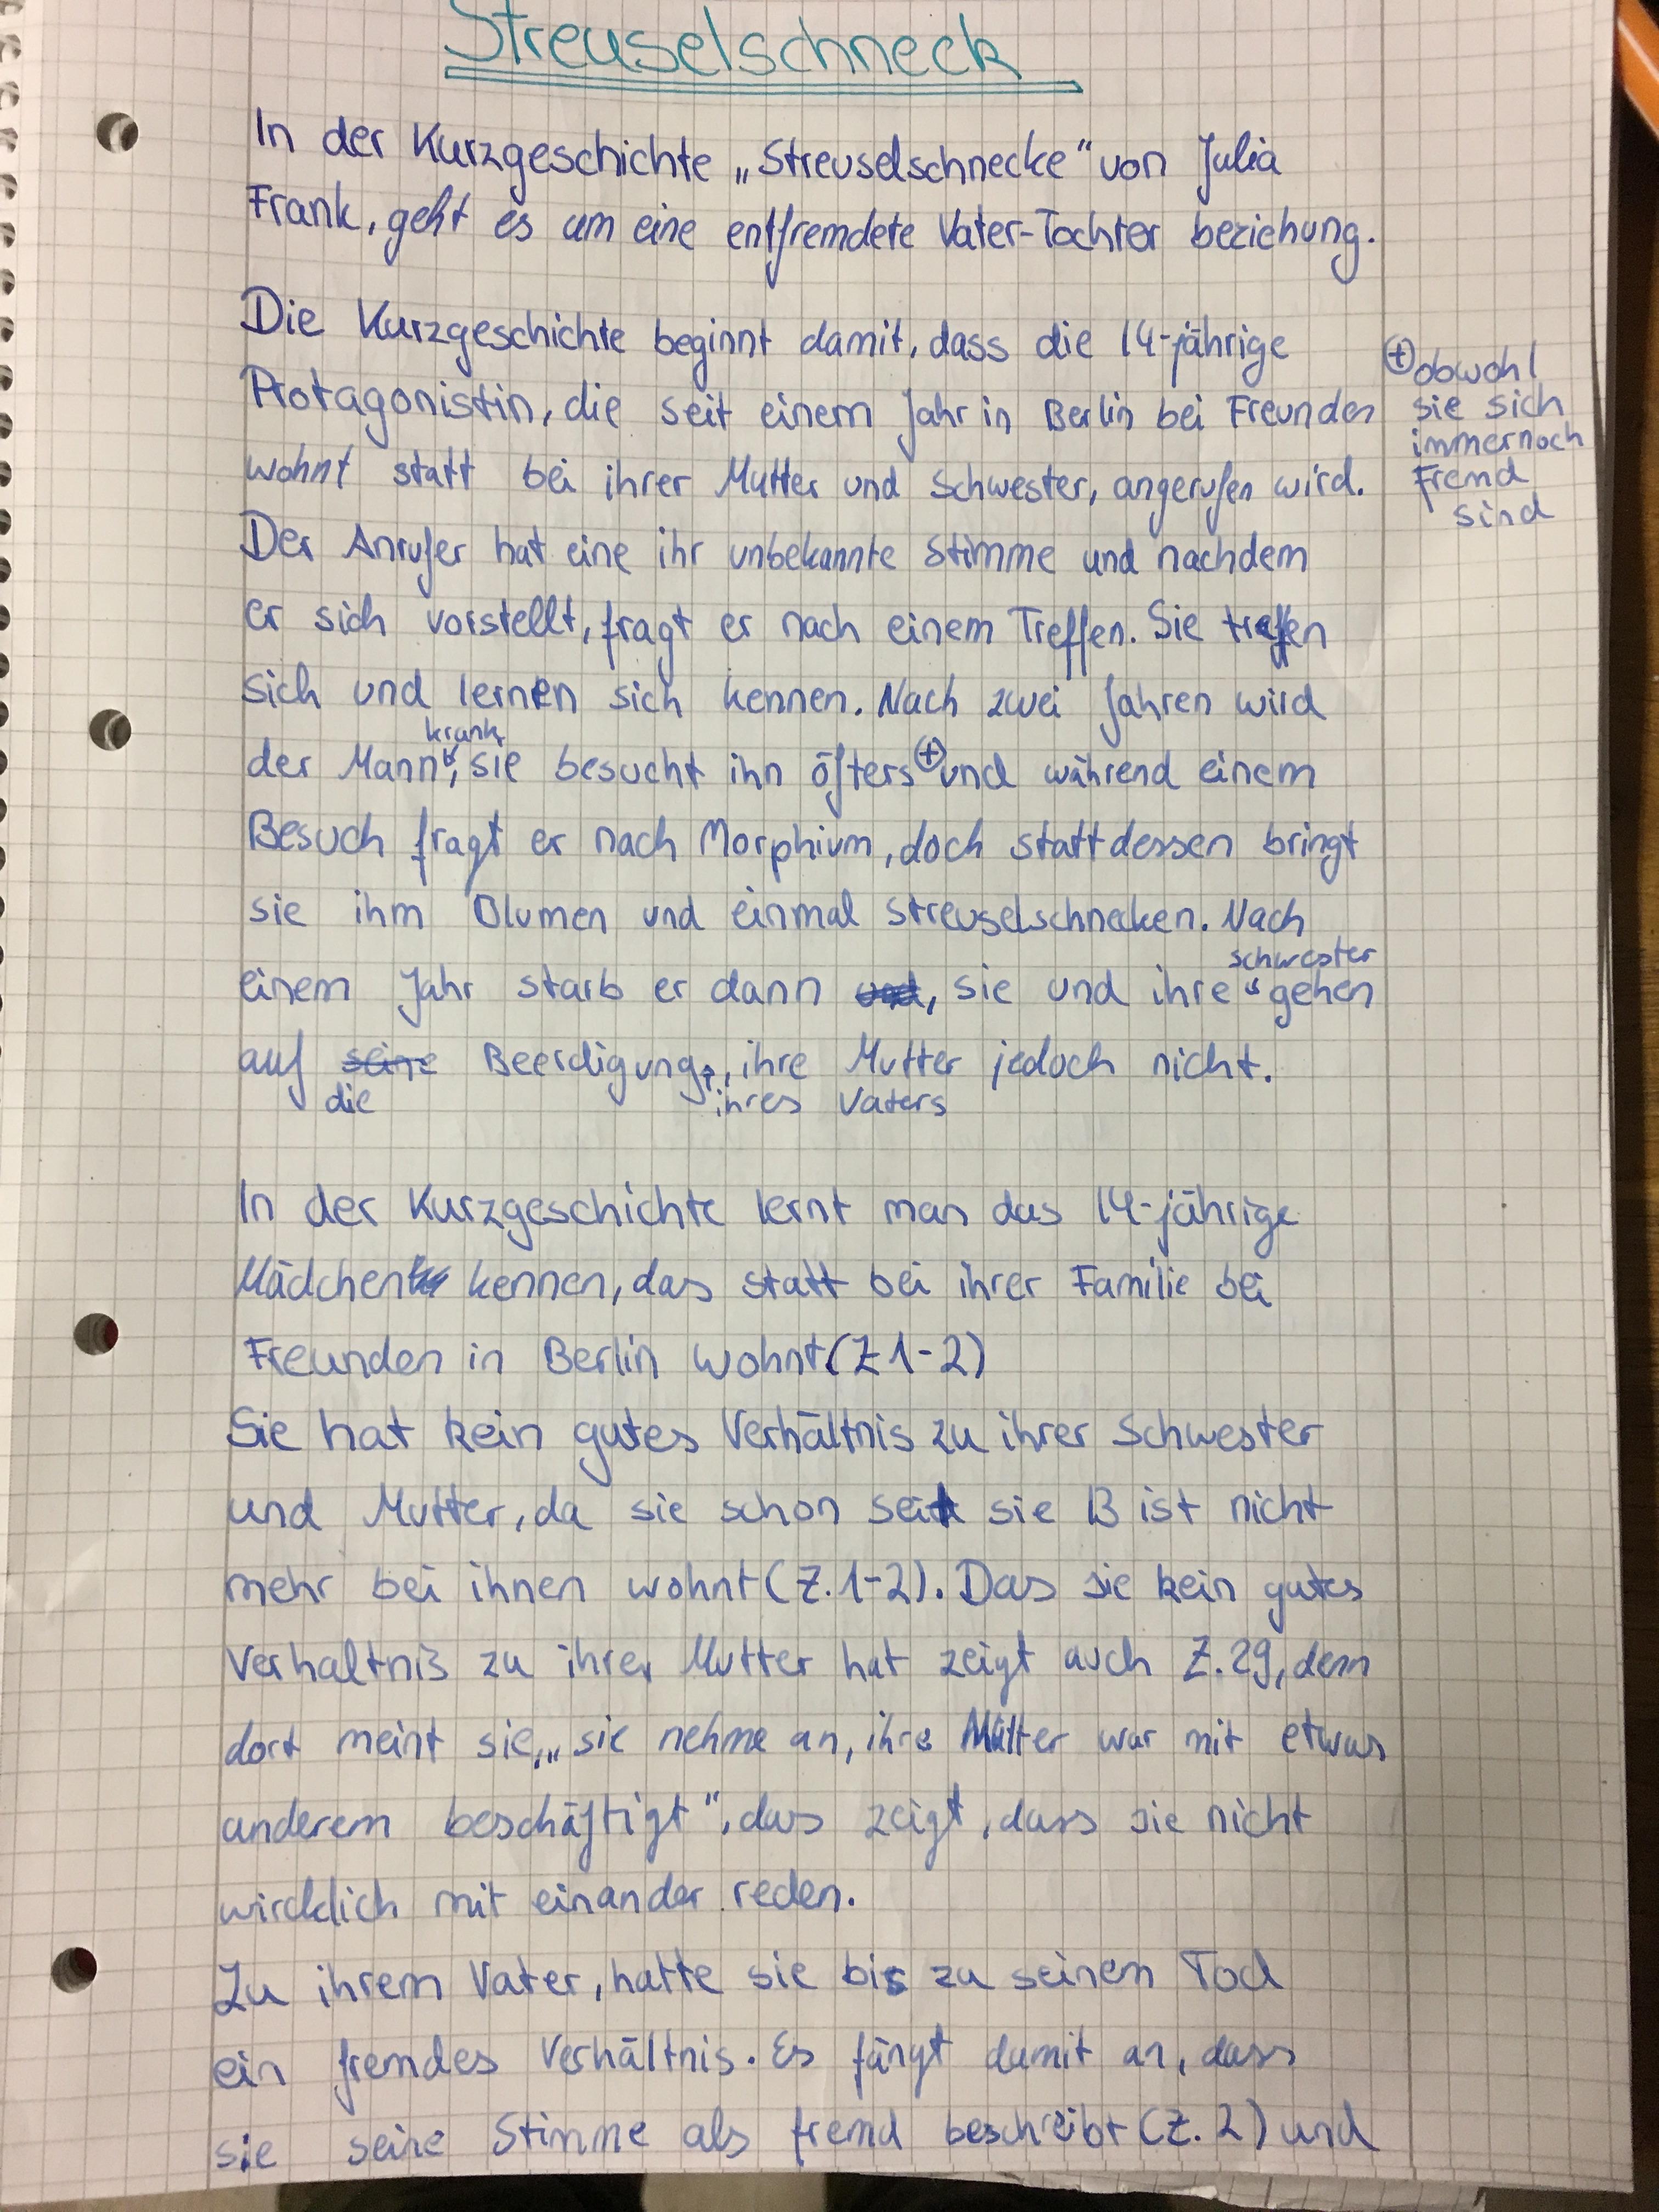 Streuselschneck
In der Kurzgeschichte „Streuselschnecke“ von Julia
Frank, geht es um eine entfremdete Vater-Tochter beziehung.
Die Kurzgeschichte beginnt damit, dass die 14-jährige
Protagonistin, die seit einem Jahr in Berlin bei Freunden
wohnt statt bei ihrer Mutter und Schwester, angerufen wird.
Der Anrufer hat eine ihr unbekannte Stimme und nachdem
er sich vorstellt, fragt er nach einem Treffen. Sie treffen
sich und lernen sich kennen. Nach zwei Jahren wird
krank
der Mann, sie besucht ihn öfters ⊕ und während einem
⊕ obwohl
sie sich
immernoch
Fremd
sind
Besuch fragt er nach Morphium, doch stattdessen bringt
sie ihm Blumen und einmal Streuselschnecken. Nach
schwester
einem Jahr starb er dann und, sie und ihre gehen
auf seine Beerdigung, ihre Mutter jedoch nicht.
die ihres Vaters
In der Kurzgeschichte lernt man das 14-jährige
Mädchen kennen, das statt bei ihrer Familie bei
Freunden in Berlin wohnt (Z 1-2)
Sie hat kein gutes Verhältnis zu ihrer Schwester
und Mutter, da sie schon seit sie 13 ist nicht
mehr bei ihnen wohnt (Z. 1-2). Das sie kein gutes
Verhaltniß zu ihrer Mutter hat zeigt auch Z. 29, denn
dort meint sie, „sie nehme an, ihre Mutter war mit etwas
anderem beschäftigt“, das zeigt, dass sie nicht
wircklich mit einander reden.
Zu ihrem Vater, hatte sie bis zu seinem Tod
ein fremdes Verhältnis. Es fängt damit an, dass
sie seine Stimme als fremd beschreibt (Z. 2) und